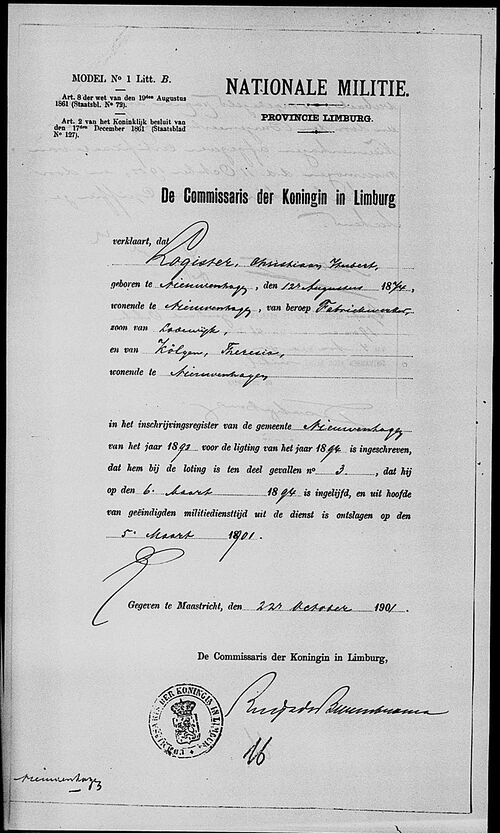 MODEL No 1 Litt. B.
Art. 8 der wet van den 19den Augustus
1861 (Staatsbl. No 72).
Art. 2 van het Koninklijk besluit van
den 17den December 1861 (Staatsblad
No 127).
NATIONALE MILITIE.
PROVINCIE LIMBURG.
De Commissaris der Koningin in Limburg
verklaart, dat
Logister, Christiaan Hubert,
geboren te Nieuwenhagen, den 12n Augustus 1874,
wonende te Nieuwenhagen, van beroep Fabriekwerker,
zoon van Lodewijk,
en van Kölgen, Theresia,
wonende te Nieuwenhagen
in het inschrijvingsregister van de gemeente Nieuwenhagen
van het jaar 1893 voor de ligting van het jaar 1894 is ingeschreven,
dat hem bij de loting is ten deel gevallen no 3, dat hij
op den 6n Maart 1894 is ingelijfd, en uit hoofde
van geëindigden militiediensttijd uit de dienst is ontslagen op den
5n Maart 1901.
Gegeven te Maastricht, den 22n October 1901
De Commissaris der Koningin in Limburg,
COMMISSARIS DER KONINGIN IN LIMBURG
16
Nieuwenhagen
3